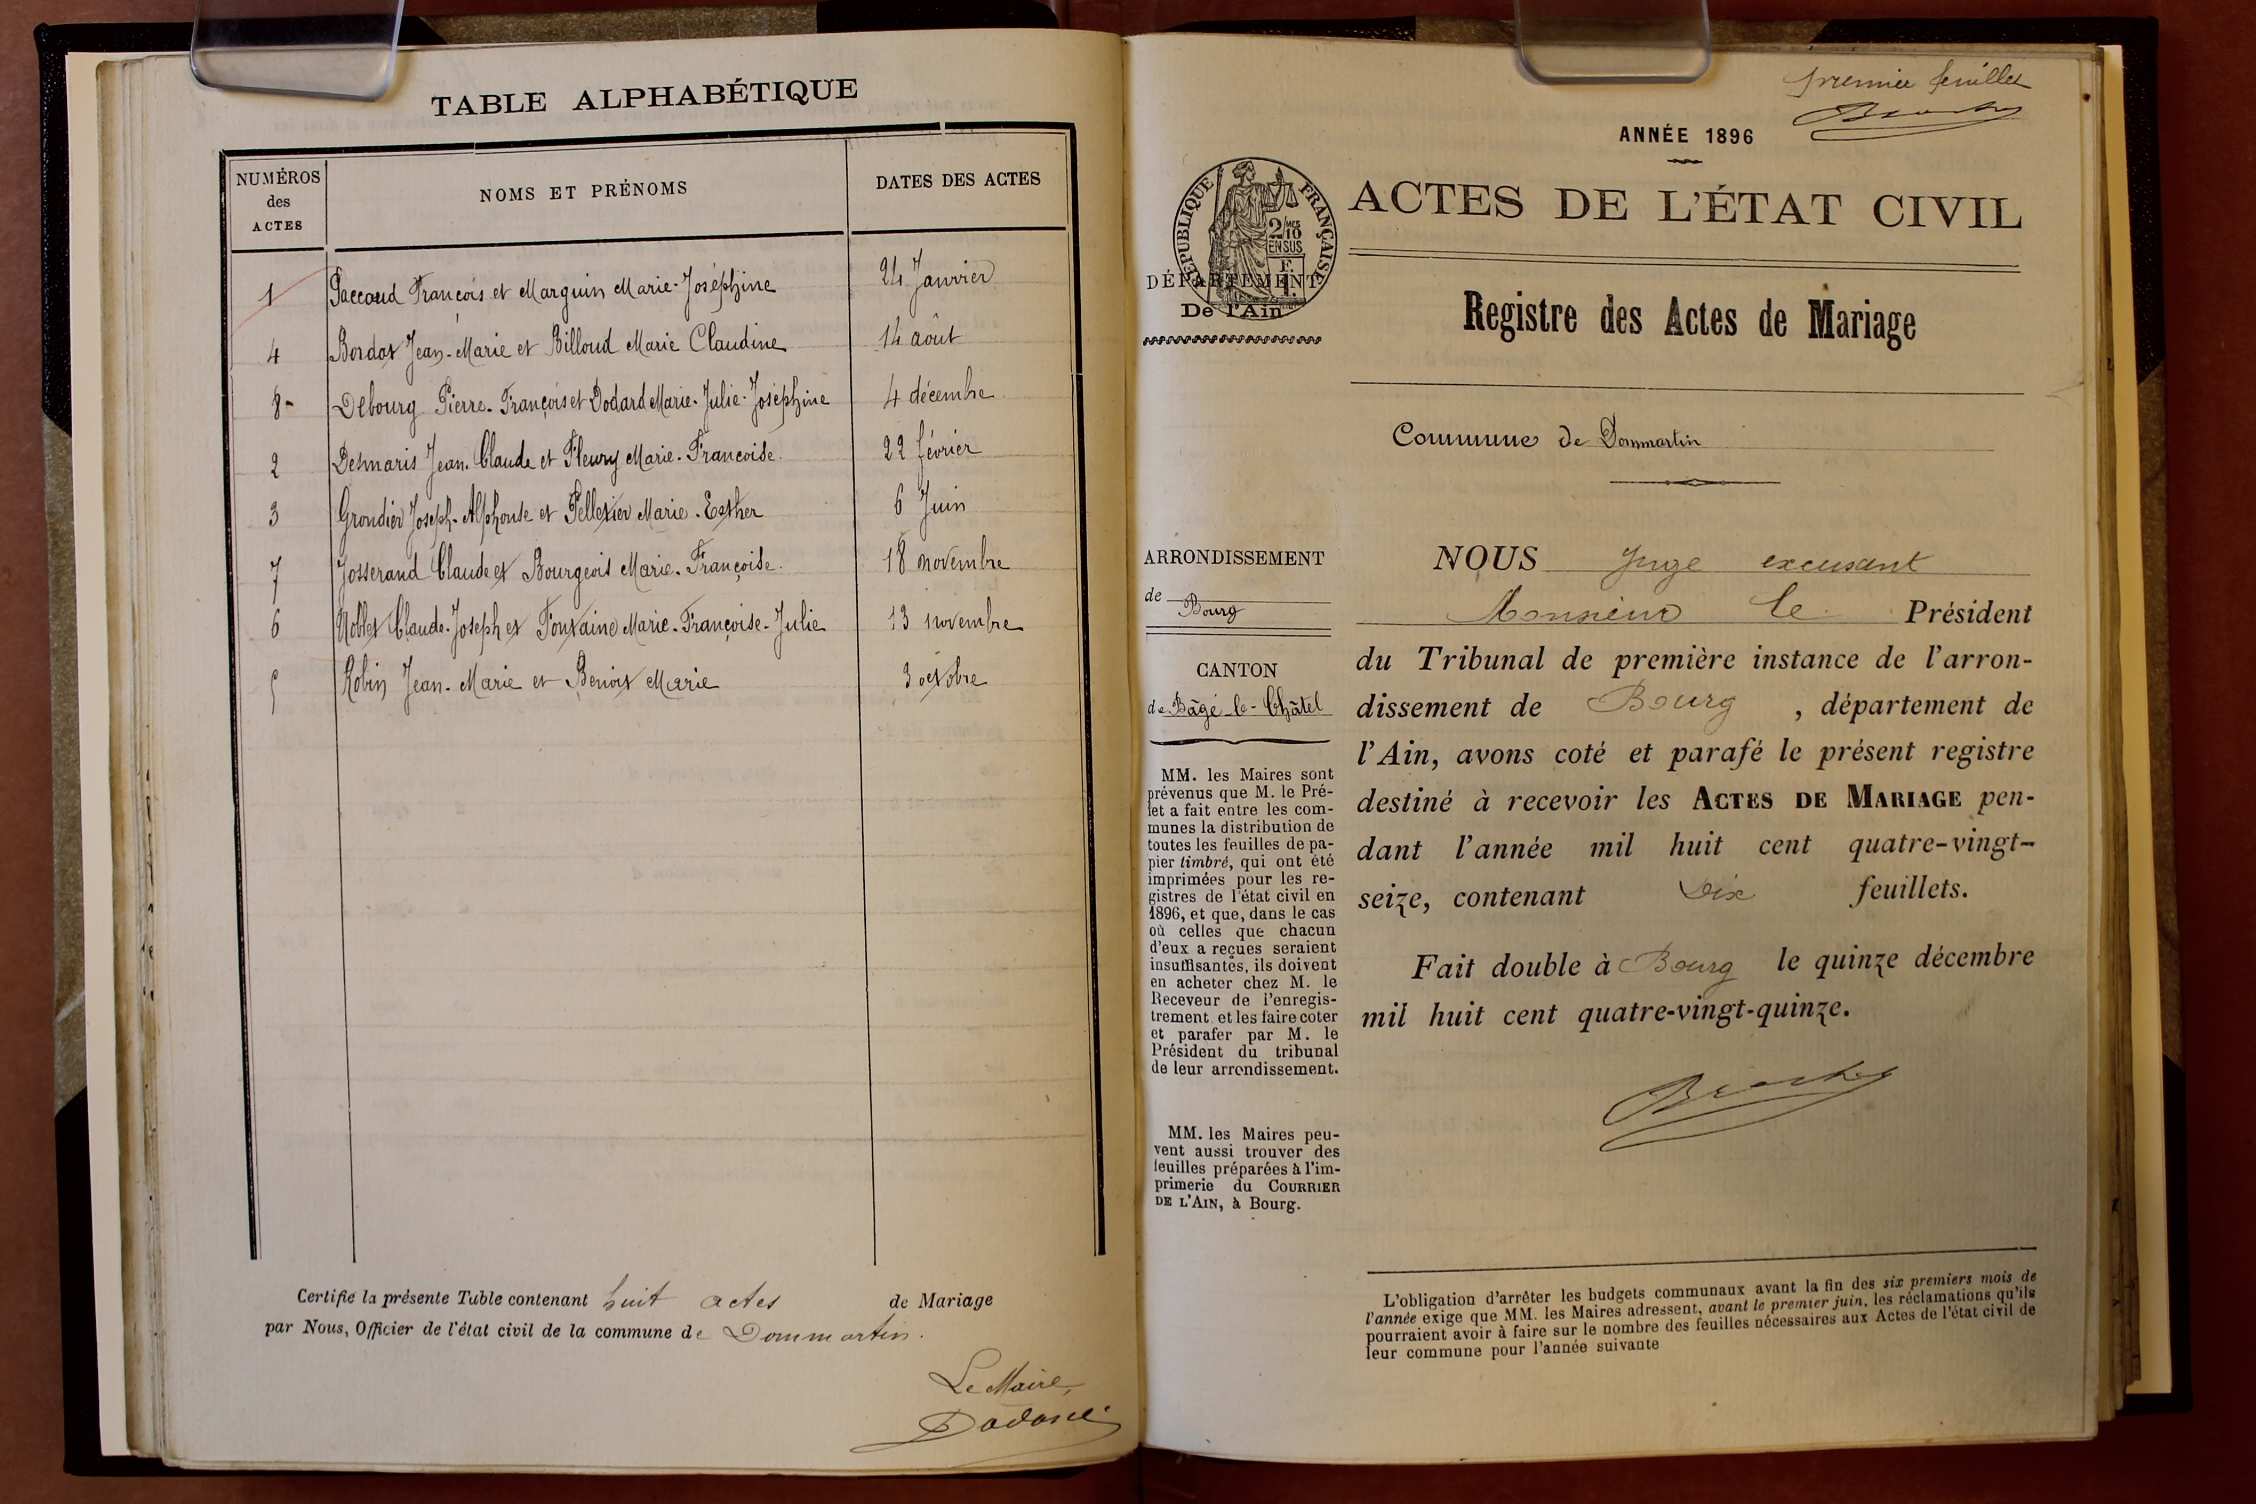 TABLE ALPHABÉTIQUE
NUMÉROS
des
ACTES
NOMS ET PRÉNOMS
DATES DES ACTES
1 Paccoud François et Marguin Marie-Joséphine 24 Janvier
4 Bordat Jean-Marie et Billoud Marie Claudine 14 août
8 - Debourg Pierre-François et Dodard Marie-Julie-Joséphine 4 décembre
2 Desmaris Jean-Claude et Fleury Marie-Françoise. 22 février
3 Grondier Joseph-Alphonse et Pelletier Marie-Esther 6 Juin
7 Josserand Claude et Bourgeois Marie-Françoise. 18 novembre
6 Noblet Claude-Joseph et Fontaine Marie-Françoise-Julie 13 novembre
5 Robin Jean-Marie et Benoit Marie 3 octobre
Certifie la présente Table contenant huit actes de Mariage
par Nous, Officier de l'état civil de la commune de Dommartin.
Le Maire,
premier feuillet
ANNÉE 1896
RÉPUBLIQUE FRANÇAISE
2/10 MES
EN SUS
ACTES DE L'ÉTAT CIVIL
DÉPARTEMENT
De l'Ain
Registre des Actes de Mariage
Commune de Dommartin
ARRONDISSEMENT
de Bourg
CANTON
de Bâgé-le-Châtel
MM. les Maires sont
prévenus que M. le Pré-
fet a fait entre les com-
munes la distribution de
toutes les feuilles de pa-
pier timbré, qui ont été
imprimées pour les re-
gistres de l'état civil en
1896, et que, dans le cas
où celles que chacun
d'eux a reçues seraient
insuffisantes, ils doivent
en acheter chez M. le
Receveur de l'enregis-
trement et les faire coter
et parafer par M. le
Président du tribunal
de leur arrondissement.
MM. les Maires peu-
vent aussi trouver des
feuilles préparées à l'im-
primerie du COURRIER
DE L'AIN, à Bourg.
NOUS Juge excusant
Monsieur le Président
du Tribunal de première instance de l'arron-
dissement de Bourg , département de
l'Ain, avons coté et parafé le présent registre
destiné à recevoir les ACTES DE MARIAGE pen-
dant l'année mil huit cent quatre-vingt-
seize, contenant Dix feuillets.
Fait double à Bourg le quinze décembre
mil huit cent quatre-vingt-quinze.
L'obligation d'arrêter les budgets communaux avant la fin des six premiers mois de
l'année exige que MM. les Maires adressent, avant le premier juin, les réclamations qu'ils
pourraient avoir à faire sur le nombre des feuilles nécessaires aux Actes de l'état civil de
leur commune pour l'année suivante